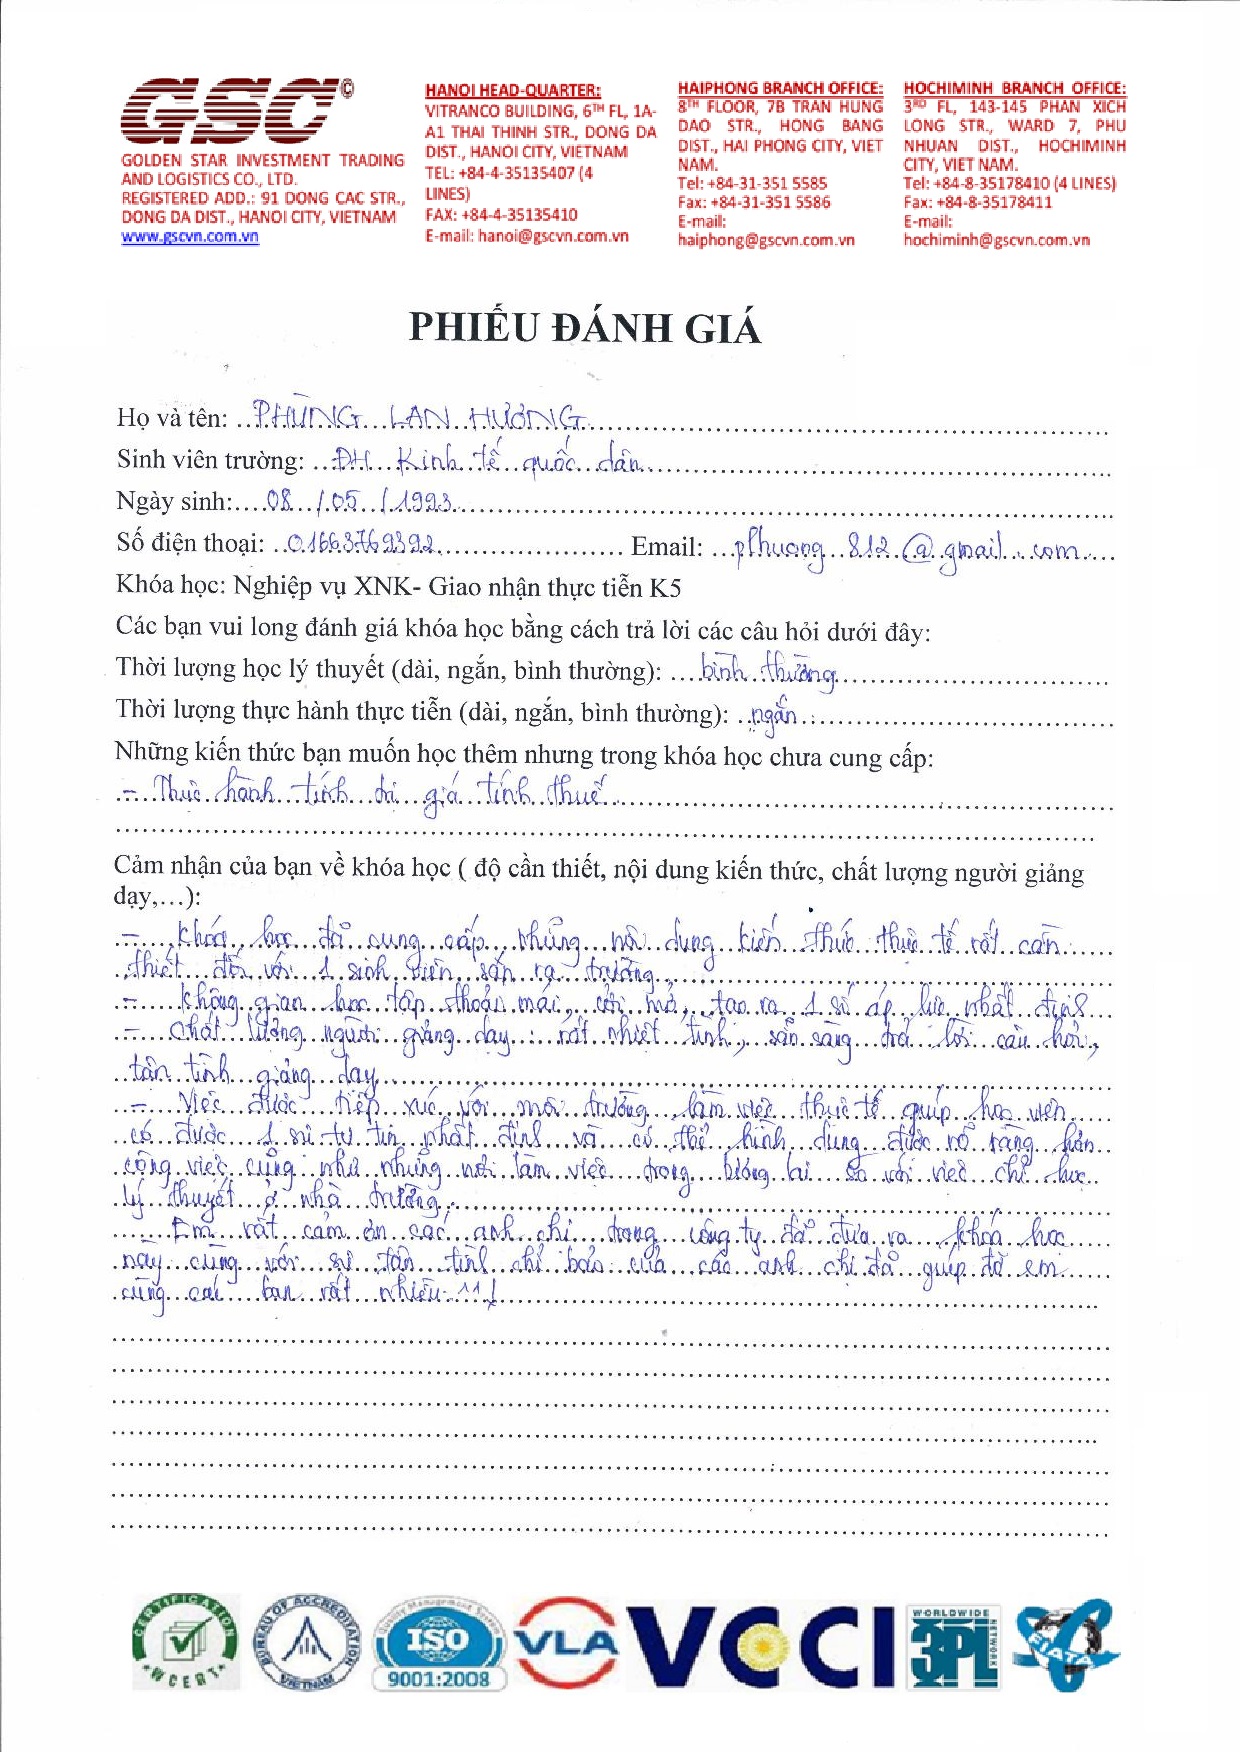 GSC©
GOLDEN STAR INVESTMENT TRADING
AND LOGISTICS CO., LTD.
REGISTERED ADD.: 91 DONG CAC STR.,
DONG DA DIST., HANOI CITY, VIETNAM
www.gscvn.com.vn
HANOI HEAD-QUARTER:
VITRANCO BUILDING, 6TH FL, 1A-
A1 THAI THINH STR., DONG DA
DIST., HANOI CITY, VIETNAM
TEL: +84-4-35135407 (4
LINES)
FAX: +84-4-35135410
E-mail: hanoi@gscvn.com.vn
HAIPHONG BRANCH OFFICE:
8TH FLOOR, 7B TRAN HUNG
DAO STR., HONG BANG
DIST., HAI PHONG CITY, VIET
NAM.
Tel: +84-31-351 5585
Fax: +84-31-351 5586
E-mail:
haiphong@gscvn.com.vn
HOCHIMINH BRANCH OFFICE:
3RD FL, 143-145 PHAN XICH
LONG STR., WARD 7, PHU
NHUAN DIST., HOCHIMINH
CITY, VIET NAM.
Tel: +84-8-35178410 (4 LINES)
Fax: +84-8-35178411
E-mail:
hochiminh@gscvn.com.vn
PHIẾU ĐÁNH GIÁ
Họ và tên: PHÙNG LAN HƯƠNG
Sinh viên trường: ĐH Kinh tế quốc dân
Ngày sinh: 08/05/1993
Số điện thoại: 01663769392 Email: phuong812@gmail.com
Khóa học: Nghiệp vụ XNK- Giao nhận thực tiễn K5
Các bạn vui long đánh giá khóa học bằng cách trả lời các câu hỏi dưới đây:
Thời lượng học lý thuyết (dài, ngắn, bình thường): bình thường
Thời lượng thực hành thực tiễn (dài, ngắn, bình thường): ngắn
Những kiến thức bạn muốn học thêm nhưng trong khóa học chưa cung cấp:
- Thực hành tính trị giá tính thuế
Cảm nhận của bạn về khóa học ( độ cần thiết, nội dung kiến thức, chất lượng người giảng
dạy,...):
- Khóa học đã cung cấp những nội dung kiến thức thực tế rất cần
thiết đối với 1 sinh viên sắp ra trường.
- Không gian học tập thoải mái, cởi mở, tạo ra 1 số áp lực nhất định
- Chất lượng người giảng dạy: rất nhiệt tình, sẵn sàng trả lời câu hỏi,
tận tình giảng dạy
- Việc được tiếp xúc với môi trường làm việc thực tế giúp học viên
có được 1 sự tự tin nhất định và có thể hình dung được rõ ràng hơn
công việc cũng như những nơi làm việc trong tương lai so với việc chỉ học
lý thuyết ở nhà trường.
Em rất cảm ơn các anh chị trong công ty đã đưa ra khóa học
này cùng với sự tận tình chỉ bảo của các anh chị đã giúp đỡ em
cùng các bạn rất nhiều ^^!
CERTIFICATION
WCERT
BUREAU OF ACCREDITATION
VIETNAM
Quality Management System
ISO
9001:2008
VLA
VCCI
WORLDWIDE
3PL
NETWORK
FIATA